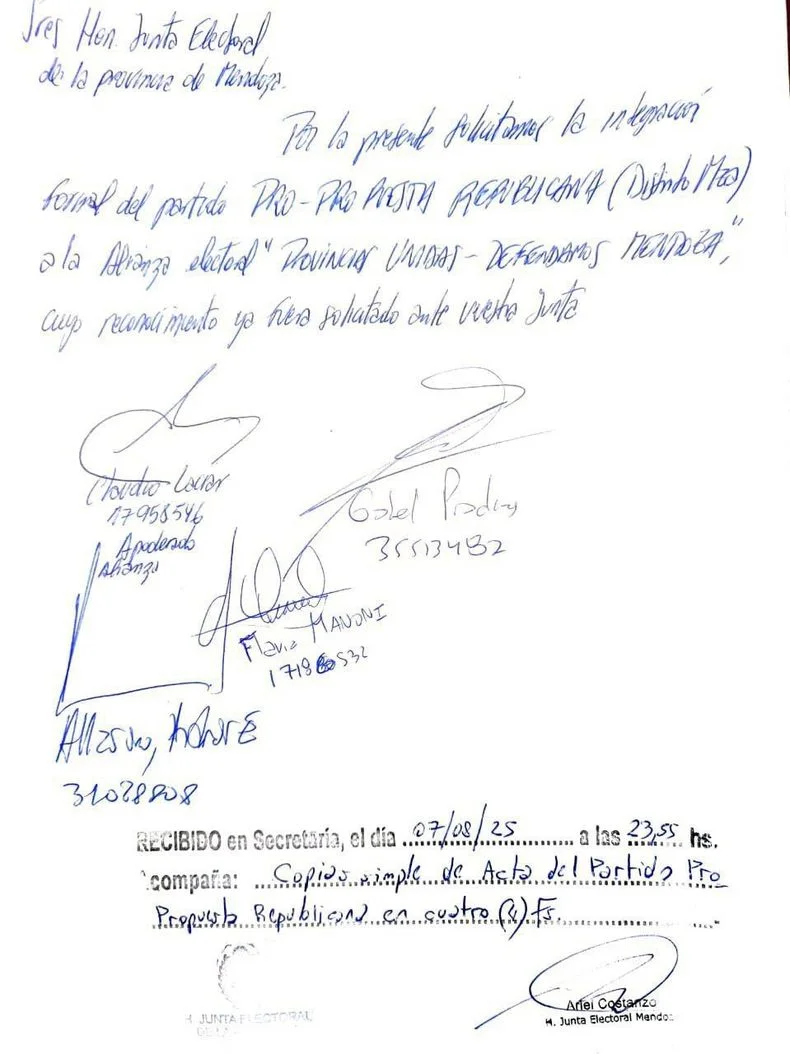 Sres Hon. Junta Electoral
de la provincia de Mendoza.
Por la presente solicitamos la integración
formal del partido PRO-PROPUESTA REPUBLICANA (Distrito Mza)
a la Alianza electoral "PROVINCIAS UNIDAS - DEFENDAMOS MENDOZA",
cuyo reconocimiento ya fuera solicitado ante vuestra Junta
Claudio
17958546
Apoderado
Alianza
Gabel Pradines
35513482
Flavia MANONI
532
31028808
RECIBIDO en Secretaría, el día 07/08/25 a las 23,55 hs.
compaña: Copias simple de Acta del Partido Pro
Propuesta Republicana en cuatro (4) Fs.
H. JUNTA ELECTORAL
Ariel Costanzo
H. Junta Electoral Mendoz